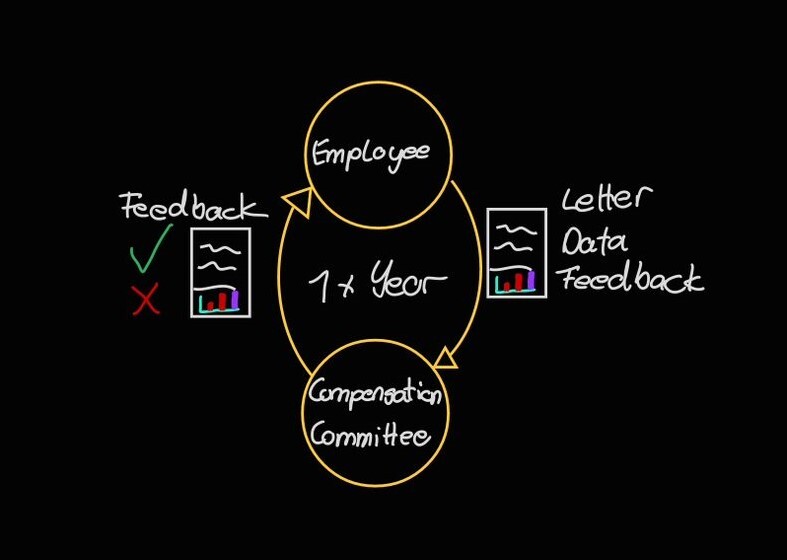 Employee
Feedback
1x Year
Letter
Data
Feedback
Compensation
Committee